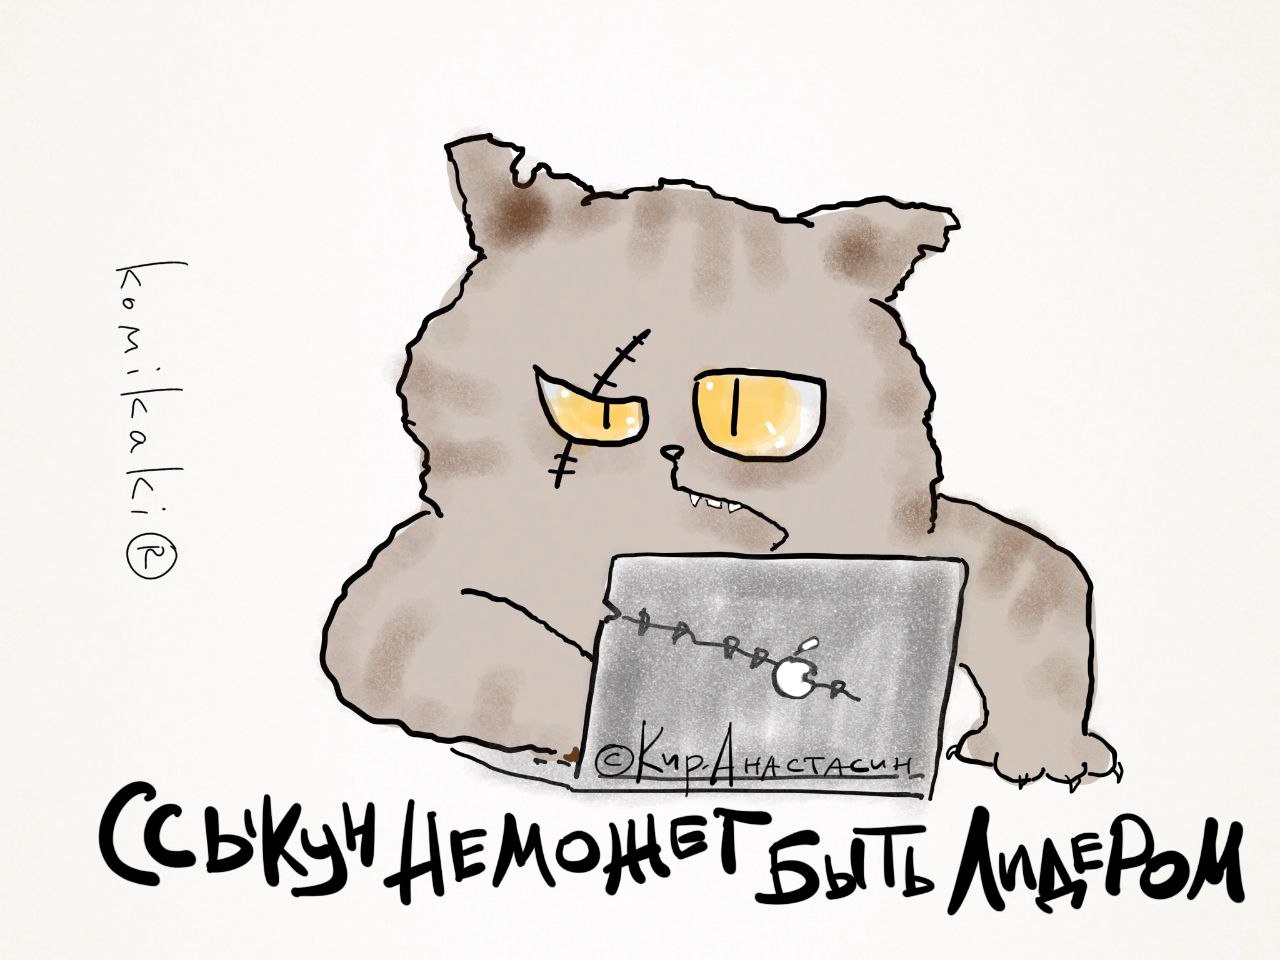 komikaki®
©Кир.Анастасин
Ссыкун не может быть лидером